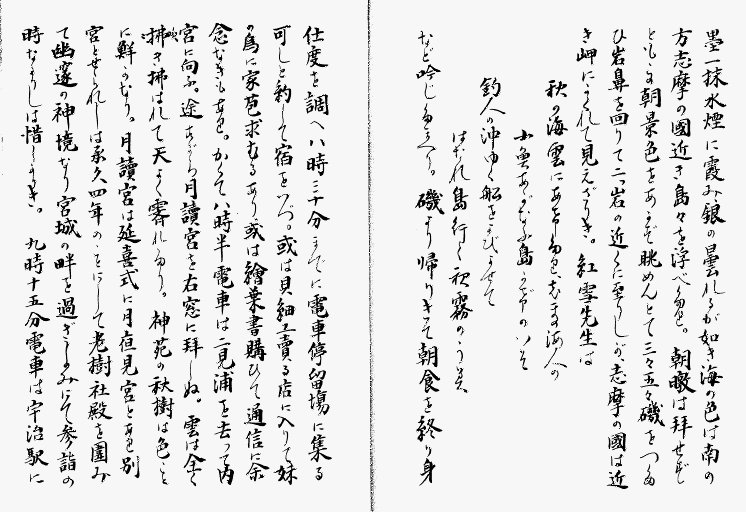 墨一抹水煙に霞み銀の曇れるが如き海の色は南の
方志摩の國近き島々を浮べ居る。朝暾は拜せず
ともよき朝景色をあかず眺めんとて三々五々磯をつたひ
ひ岩鼻を回りて二つ岩の近くに至りしが、志摩の國は近
き岬にかくれて見えざりき。紅雪先生は
秋の海雲にあをぞら志ま海人の
小魚あみなふ島かげのいそ
釣人の沖ゆく船をよびよせて
はなれ島行く秋霧のうみ
など吟じ居たり。磯より帰りきて朝食を終り身
仕度を調へ八時三十分までに電車停留場に集る
可しと約して宿をいづ。或は貝細工賣る店に入りて妹
の爲に家苞求むるあり或は繪葉書購ひて通信に余
念なきもあり。かくて八時半電車は二見浦を去つて内
宮に向ふ。途ながら月讀宮を右窓に拜しぬ。雲は全く
拂き拂はれて天よく霽れたり。神苑の秋樹は色こと
に鮮かなり。月讀宮は延喜式に月夜見宮とあり別
宮とせられしは承久四年のことにして老樹社殿を圍み
て幽邃の神境なり宮城の畔を過ぎしのみにて参詣の
時なかりしは惜しかりき。九時十五分電車は宇治駅に